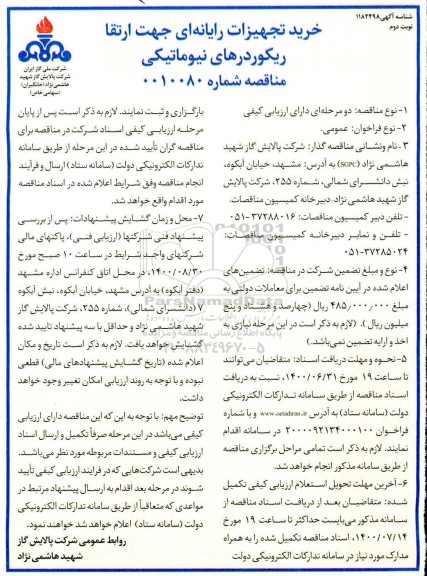 شناسه آگهی ۱۱۸۴۴۹۸
نوبت دوم
خرید تجهیزات رایانه‌ای جهت ارتقا
ریکوردرهای نیوماتیکی
مناقصه شماره ۰۰۱۰۰۸۰
شرکت ملی گاز ایران
شرکت پالایش گاز شهید
هاشمی نژاد (خانگیران)
(سهامی خاص)
۱- نوع مناقصه: دو مرحله‌ای دارای ارزیابی کیفی
۲- نوع فراخوان: عمومی.
۳- نام ونشانی مناقصه گذار: شرکت پالایش گاز شهید
هاشمی نژاد (SGPC) به آدرس: مشهد، خیابان آبکوه،
نبش دانشسرای شمالی، شماره ۲۵۵، شرکت پالایش
گاز شهید هاشمی نژاد، دبیرخانه کمیسیون مناقصات.
- تلفن دبیر کمیسیون مناقصات: ۳۷۲۸۸۰۱۶-۰۵۱
- تلفن و نمابر دبیرخانه کمیسیون مناقصات:
۳۷۲۸۵۰۲۴-۰۵۱
۴- نوع و مبلغ تضمین شرکت در مناقصه: تضمین‌های
اعلام شده در آیین نامه تضمین برای معاملات دولتی به
مبلغ ۴۸۵٫۰۰۰٫۰۰۰ ریال (چهارصد و هشتاد و پنج
میلیون ریال). لازم به ذکر است در این مرحله نیازی به
اخذ و ارایه تضمین نمی‌باشد.)
۵- نحوه و مهلت دریافت اسناد: متقاضیان می‌توانند
تا ساعت ۱۹ مورخ ۱۴۰۰/۰۶/۳۱، نسبت به دریافت
اسناد مناقصه از طریق سامانه تدارکات الکترونیکی
دولت (سامانه ستاد) به آدرس www.setadiran.ir و با شماره
فراخوان ۲۰۰۰۰۹۲۱۳۴۰۰۰۱۰۰ در سامانه اقدام
نمایند. لازم به ذکر است تمامی مراحل برگزاری مناقصه
از طریق سامانه مذکور انجام خواهد شد.
۶- آخرین مهلت تحویل استعلام ارزیابی کیفی تکمیل
شده: متقاضیان بعد از دریافت اسناد مناقصه از
سامانه مذکور می‌بایست حداکثر تا ساعت ۱۹ مورخ
۱۴۰۰/۰۷/۱۴، اسناد مناقصه تکمیل شده را به همراه
مدارک مورد نیاز در سامانه تدارکات الکترونیکی دولت
بارگزاری و ثبت نمایند. لازم به ذکر است پس از پایان
مرحله ارزیابی کیفی اسناد شرکت در مناقصه برای
مناقصه گران تأیید شده در این مرحله از طریق سامانه
تدارکات الکترونیکی دولت (سامانه ستاد) ارسال و فرآیند
انجام مناقصه وفق شرایط اعلام شده در اسناد مناقصه
مورد اقدام واقع خواهد شد.
۷- محل و زمان گشایش پیشنهادات: پس از بررسی
پیشنهاد فنی شرکتها (ارزیابی فنی)، پاکتهای مالی
شرکتهای واجد شرایط در ساعت ۱۰ صبح مورخ
۱۴۰۰/۰۸/۳۰، در محل اتاق کنفرانس اداره مشهد
(دفتر آبکوه) به آدرس مشهد، خیابان آبکوه، نبش آبکوه
۷ (دانشسرای شمالی)، شماره ۲۵۵، شرکت پالایش گاز
شهید هاشمی نژاد و حداقل با سه پیشنهاد تایید شده
گشایش خواهد یافت. لازم به ذکر است تاریخ و مکان
اعلام شده (تاریخ گشایش پیشنهادهای مالی) قطعی
نبوده و با توجه به روند ارزیابی امکان تغییر وجود خواهد
داشت.
توضیح مهم: با توجه به این که این مناقصه دارای ارزیابی
کیفی می‌باشد در این مرحله صرفاً تکمیل و ارسال اسناد
ارزیابی کیفی و مستندات مربوطه مورد نظر می‌باشد.
بدیهی است شرکت‌هایی که در فرایند ارزیابی کیفی تأیید
شوند در مرحله بعد اقدام به ارسال پیشنهاد مرتبط در
مواعدی که متعاقباً از طریق سامانه تدارکات الکترونیکی
دولت (سامانه ستاد) اعلام خواهد شد خواهند نمود.
روابط عمومی شرکت پالایش گاز
شهید هاشمی نژاد
ParsNamadData
۰۲۱-۸۸۳۴۹۶۷۰-۵